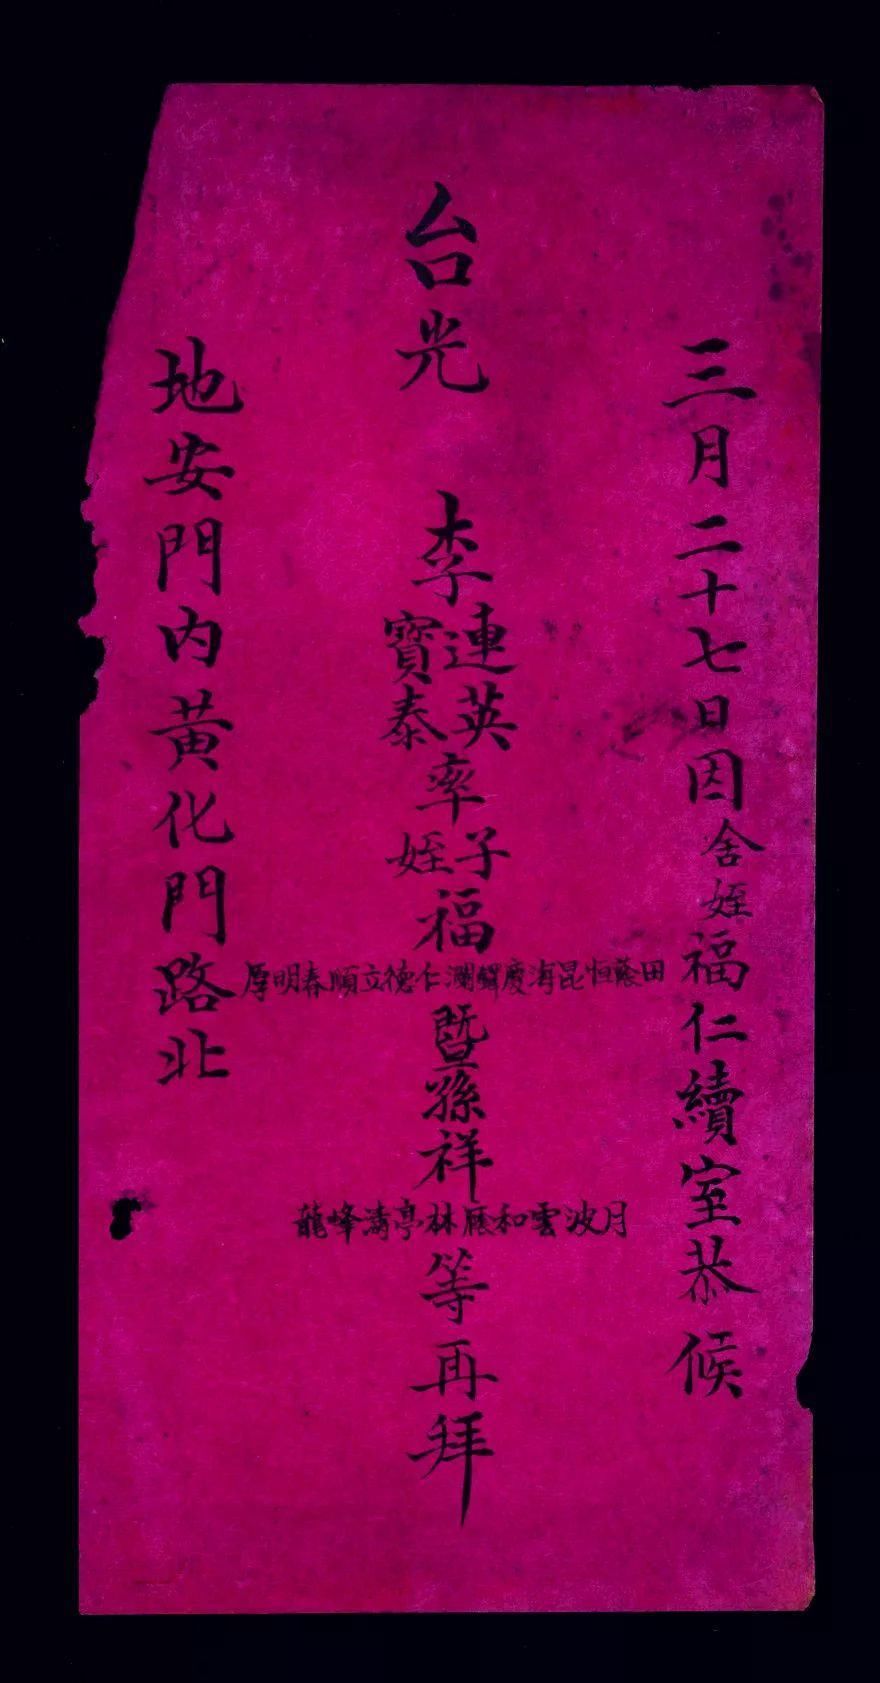 三月二十七日因舍姪福仁續室恭候
台光
李連英
寶泰
率子
姪
福
田蔭恒昆海慶鐸瀾仁德立順春明厚
暨孫祥
月波雲和廕林亭濤峰龍
等再拜
地安門内黃化門路北